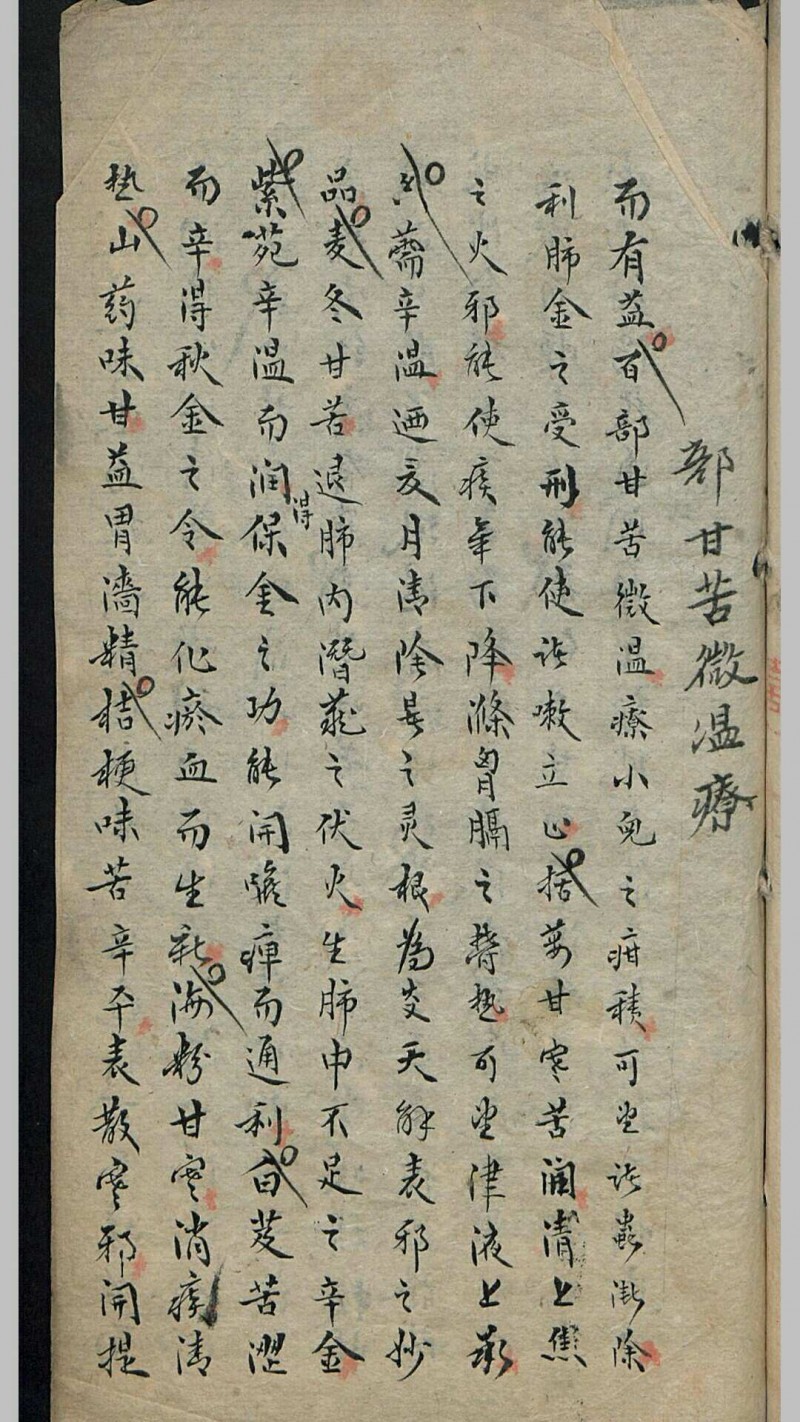 部甘苦微温療
而有益百部甘苦微温療小兒之疳積可望諸蟲漸除
利肺金之受刑能使咳嗽立止括蒌甘寒苦润清上焦
之火邪能使痰氣下降滌胃膈之欝热可望津液上承
薷辛温迺夏月清陰暑之灵根為炎天解表邪之妙
品麦冬甘苦退肺内潛藏之伏火生肺中不足之辛金
紫苑辛温而润得保金之功能開喉痺而通利白芨苦澀
而辛得秋金之令能化瘀血而生新海粉甘寒消痰清
热山药味甘益胃濇精桔梗味苦辛平表散寒邪開提